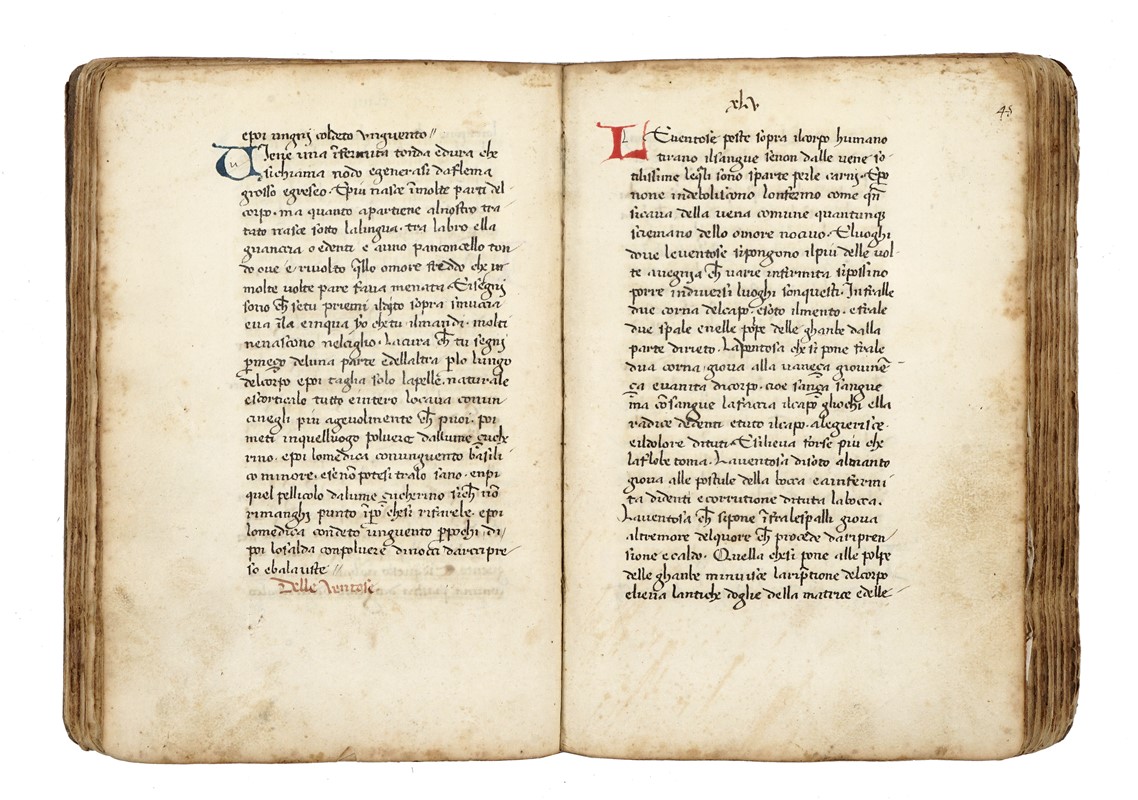 epoi ungni coldeto unguento//
Uiene una īfermita tonda edura che
sichiama nodo egenerasi daflema
grosso egreseo. Epiu nasce īmolte parti del
corpo. ma quanto apartiene alnostro tra
tato nasce sotto lalingua. tra labro ella
guancia o edenti e anno panconcello ton
do ove e rivolto q̄llo omore freddo che in
molte volte pare fava menata. Eisegni
sono ch̄ setu priemi
molti
nenascono nelciglio. Lacura ch̄ tu segni
p̄meço deluna parte edellaltra p̄lo lungo
delcorpo epoi taglia solo lapelle. naturale
escorticalo tutto eintero locava conun
cinegli piu agevolmente ch̄ puoi. poi
meti inquelluogo polvere dallume çuche
rino. epoi lomedica conunguento basili
co minore. esenō potesi tralo sano. enpi
quel pellicolo dalume çucherino sich̄ nō
rimanghi punto īp̄o chesi rifarebe. epoi
lomedica condeto unguento p̄pochi di.
poi losalda conpolvere dinoci darcipre
so ebalauste //
Delle Ventose
xlv
45
LEventose poste sopra ilcorpo humano
tirano ilsangue senon dalle vene so
tilissime leq̄li sono sparte perle carni. Ep̄o
none indeboliscono lonfermo come q̄n
sicava della vena comune quantunq̄
sciemano dello omore nocivo. Eluoghi
dove leventose sipongono ilpiu delle vol
te avegnia ch̄ varie infirmita sipossino
porre indiversi luoghi sonquesti. Infralle
due corna delcapo. esoto ilmento. efrale
due spale enelle polpe delle ghambe dalla
parte dirieto. Laventosa che si pone frale
dua corna. giova alla
ça evanita dicorpo. cioe sança sangue
ma cōsangue lafaccia ilcapo gliochi ella
radice dedenti etuto ilcapo. alegierisce.
eildolore dituti. Esilieva forse piu che
laflobotoma. Laventosa disoto almento
giova alle postule della bocca eainfermi
ta didenti ecorrutione dituta labocca.
Laventosa ch̄ sipone īfralespalli giova
altremore delquore ch̄ procede daripren
sione ecaldo. Quella chesi pone alle polpe
delle ghambe minuisce delcorpo
elieva lantiche doglie della matrice edelle